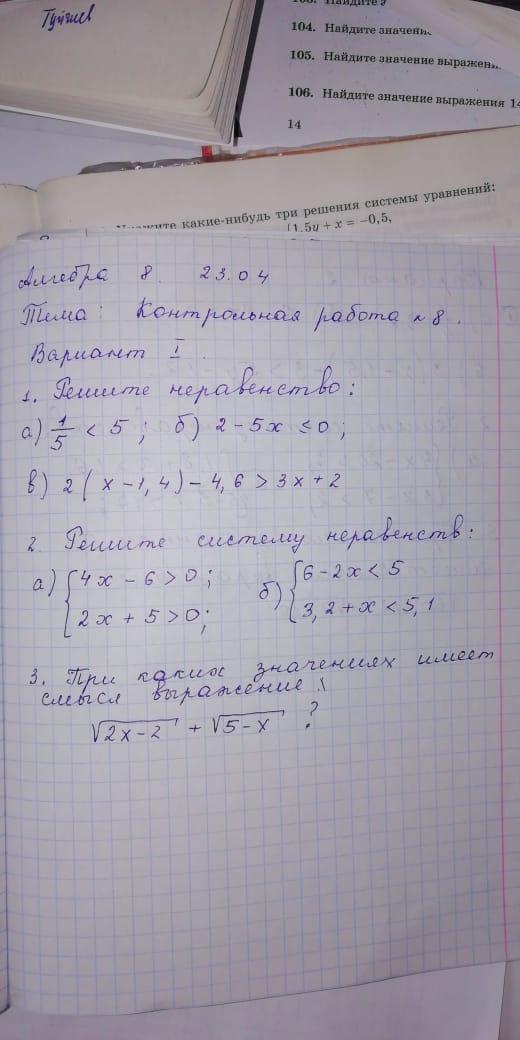 Туйчиев
104. Найдите значени
105. Найдите значение выражен
106. Найдите значение выражения 14
14
какие-нибудь три решения системы уравнений:
{1,5y + x = -0,5,
Алгебра 8. 23.04
Тема: Контрольная работа №8.
Вариант I.
1. Решите неравенство:
а) 1/5 < 5; б) 2-5x ≤ 0;
в) 2(x-1,4)-4,6 > 3x+2
2. Решите систему неравенств:
а) {4x-6>0; б) {6-2x<5
2x+5>0; 3,2+x<5,1
3. При каких значениях имеет
смысл выражение:
√2x-2 + √5-x ?